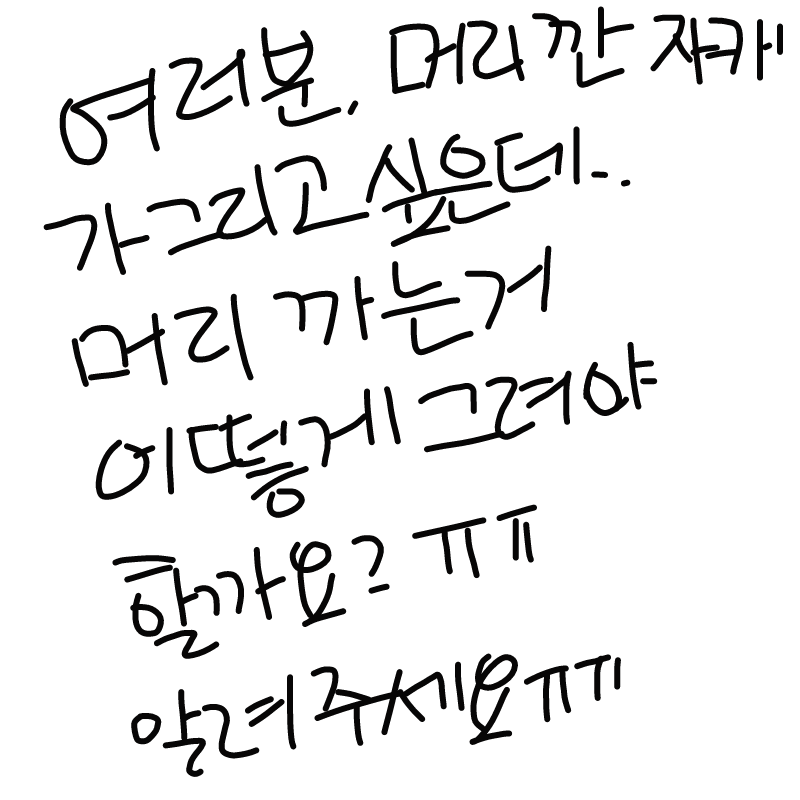 여러분, 머리깐 자캐
가 그리고 싶은데..
머리 까는거
어떻게 그려야
할까요? ㅠㅠ
알려주세요ㅠㅠ